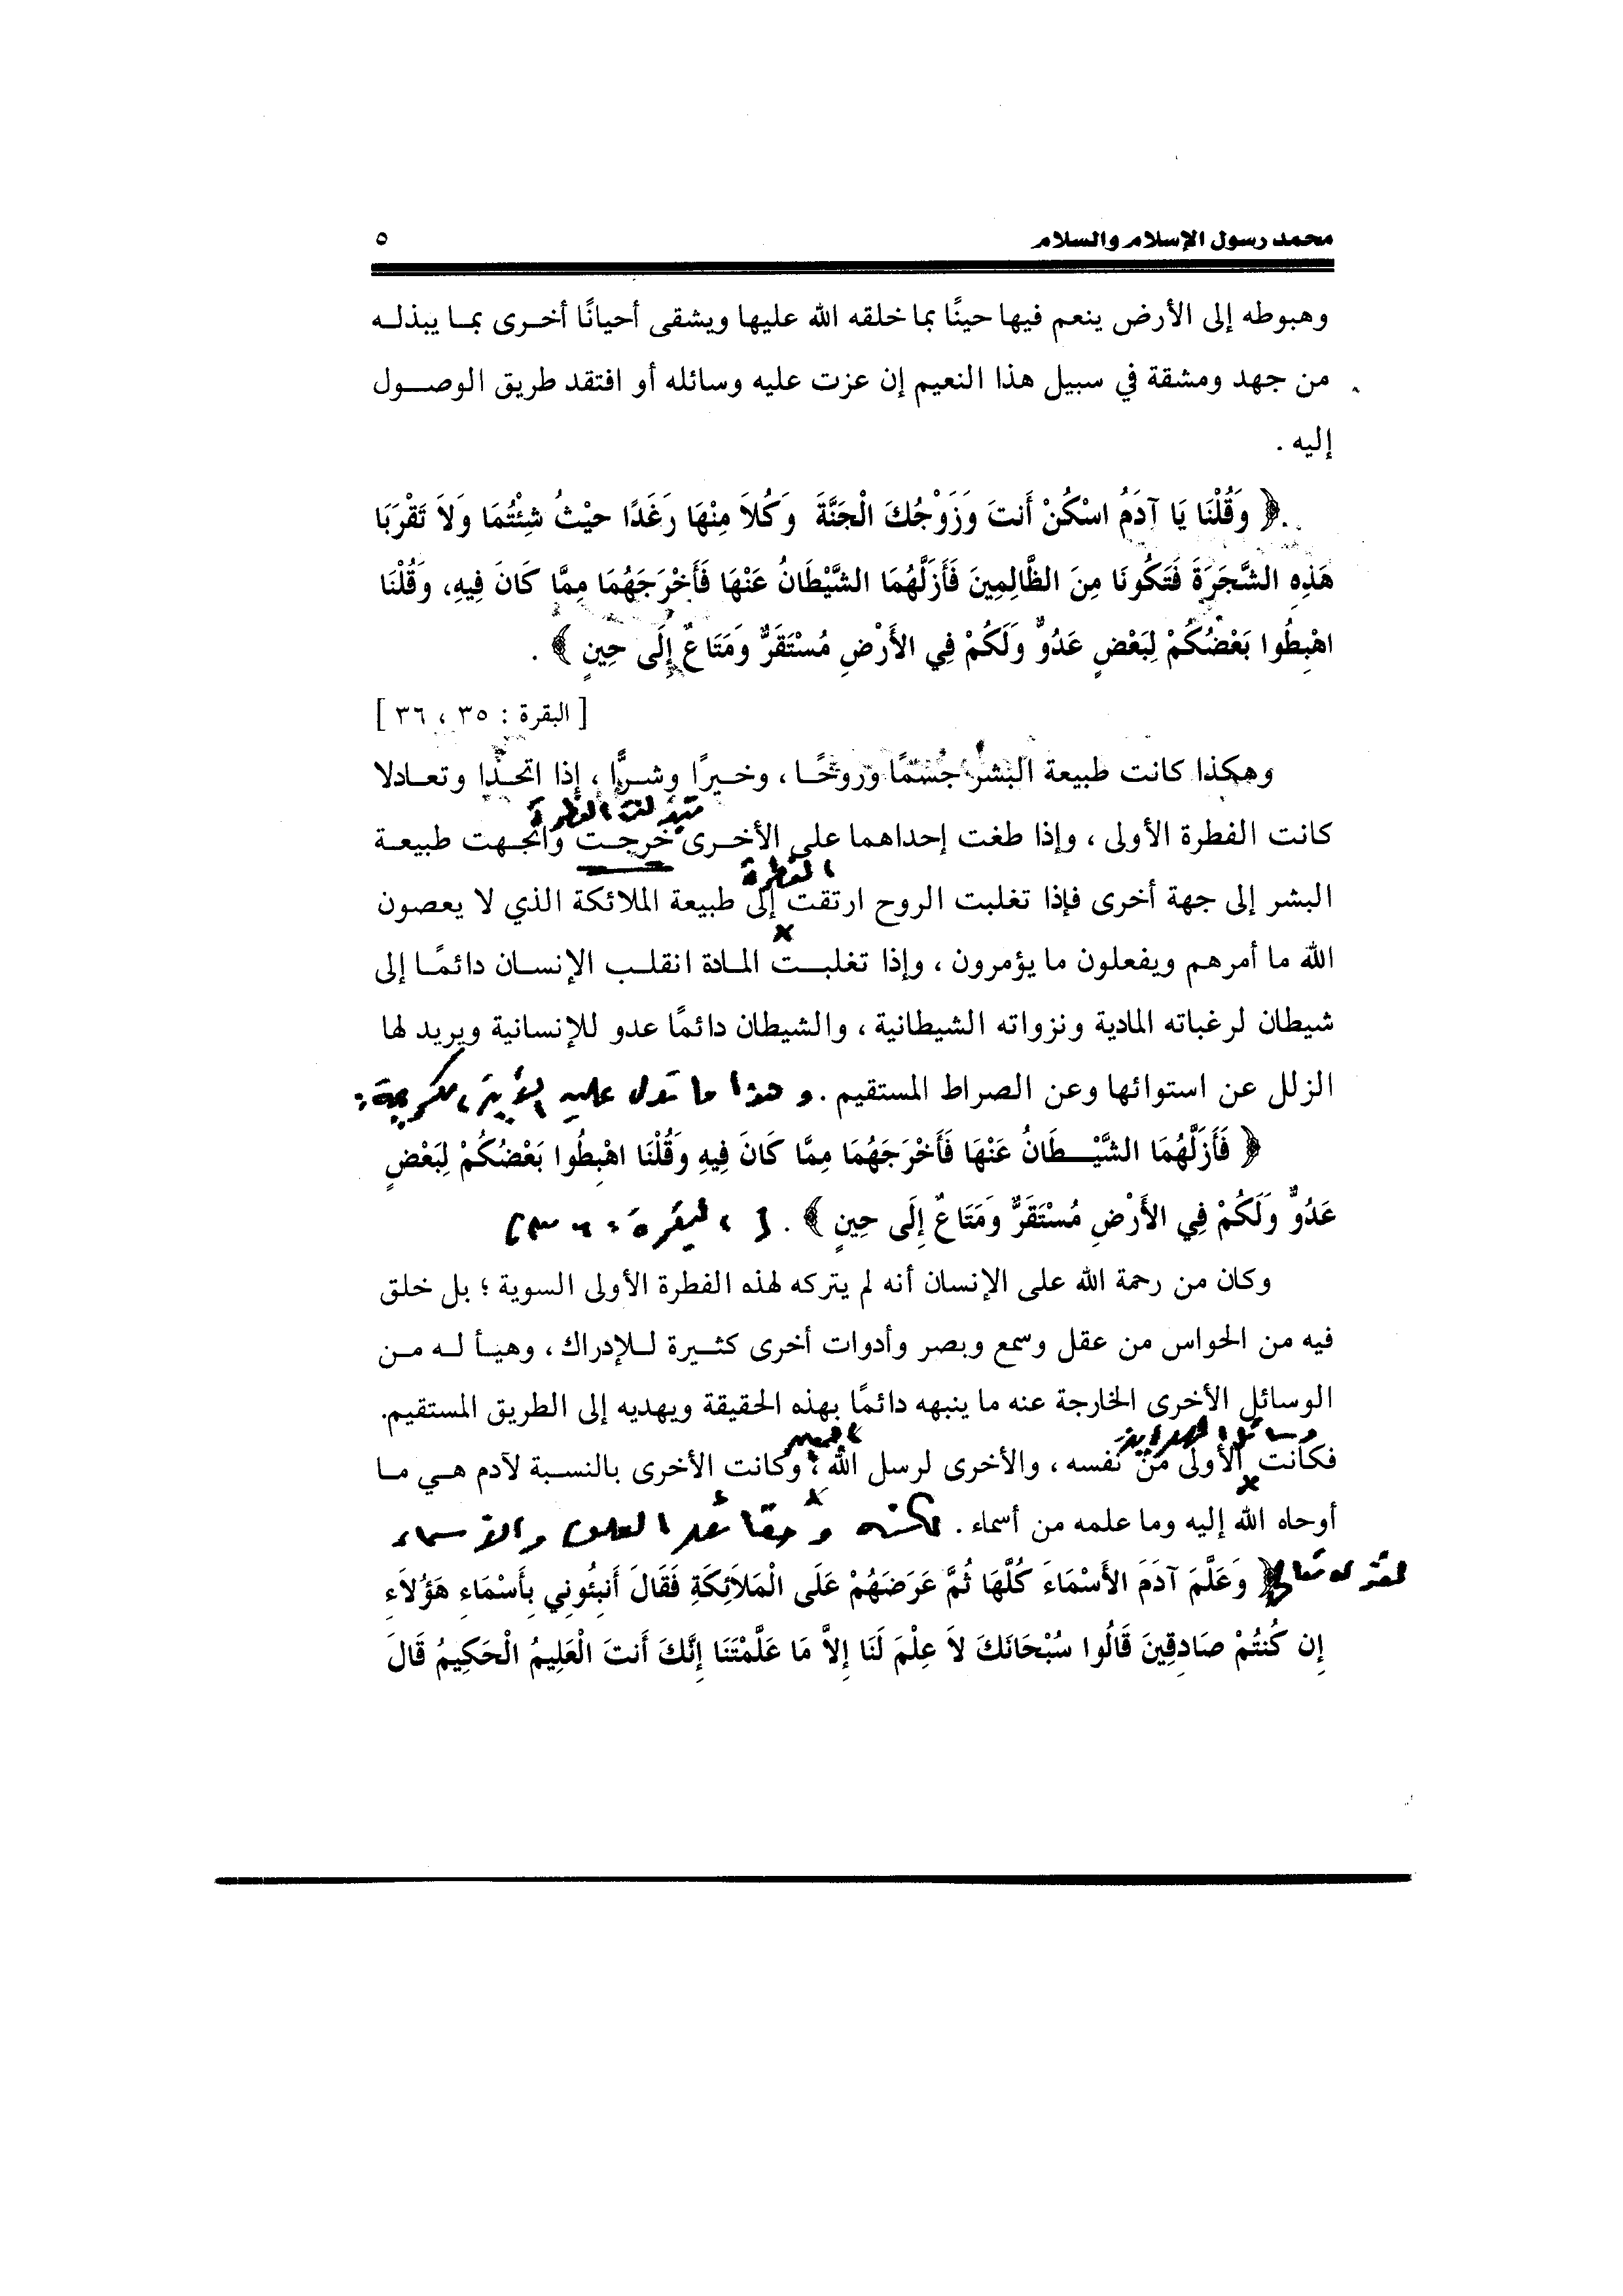 محمد رسول الإسلام والسلام ٥
وهبوطه إلى الأرض ينعم فيها حينًا بما خلقه الله عليها ويشقى أحيانًا أخرى بما يبذله
من جهد ومشقة في سبيل هذا النعيم إن عزت عليه وسائله أو افتقد طريق الوصول
إليه .
﴿ وَقُلْنَا يَا آدَمُ اسْكُنْ أَنتَ وَزَوْجُكَ الْجَنَّةَ وَكُلاَ مِنْهَا رَغَدًا حيْثُ شِئْتُمَا وَلاَ تَقْرَبَا
هَذِهِ الشَّجَرَةَ فَتَكُونَا مِنَ الظَّالِمِينَ فَأَزَلَّهُمَا الشَّيْطَانُ عَنْهَا فَأَخْرَجَهُمَا مِمَّا كَانَ فِيهِ، وَقُلْنَا
اهْبِطُوا بَعْضُكُمْ لِبَعْضٍ عَدُوٌّ وَلَكُمْ فِي الأَرْضِ مُسْتَقَرٌّ وَمَتَاعٌ إِلَى حِينٍ ﴾ .
[ البقرة : ٣٥ ، ٣٦ ]
وهكذا كانت طبيعة البشر جُسْمًا وروحًا ، وخيرًا وشرًّا ، إذا اتحدا وتعادلا
الفطرة
كانت الفطرة الأولى ، وإذا طغت إحداهما على الأخرى خرجت واتجهت طبيعة
الفطرة
البشر إلى جهة أخرى فإذا تغلبت الروح ارتقت إلى طبيعة الملائكة الذي لا يعصون
الله ما أمرهم ويفعلون ما يؤمرون ، وإذا تغلبت المادة انقلب الإنسان دائمًا إلى
شيطان لرغباته المادية ونزواته الشيطانية ، والشيطان دائمًا عدو للإنسانية ويريد لها
الزلل عن استوائها وعن الصراط المستقيم . وهذا ما تدل عليه الآية الكريمة :
﴿ فَأَزَلَّهُمَا الشَّيْطَانُ عَنْهَا فَأَخْرَجَهُمَا مِمَّا كَانَ فِيهِ وَقُلْنَا اهْبِطُوا بَعْضُكُمْ لِبَعْضٍ
عَدُوٌّ وَلَكُمْ فِي الأَرْضِ مُسْتَقَرٌّ وَمَتَاعٌ إِلَى حِينٍ ﴾ . [ البقرة : ٣٦ ]
وكان من رحمة الله على الإنسان أنه لم يتركه لهذه الفطرة الأولى السوية ؛ بل خلق
فيه من الحواس من عقل وسمع وبصر وأدوات أخرى كثيرة للإدراك ، وهيأ له من
الوسائل الأخرى الخارجة عنه ما ينبهه دائمًا بهذه الحقيقة ويهديه إلى الطريق المستقيم.
وسائل الهداية
فكانت الأولى من نفسه ، والأخرى لرسل الله ، وكانت الأخرى بالنسبة لآدم هي ما
أوحاه الله إليه وما علمه من أسماء . والأسماء
لقوله تعالى ﴿ وَعَلَّمَ آدَمَ الأَسْمَاءَ كُلَّهَا ثُمَّ عَرَضَهُمْ عَلَى الْمَلاَئِكَةِ فَقَالَ أَنبِئُونِي بِأَسْمَاءِ هَؤُلاَءِ
إِن كُنتُمْ صَادِقِينَ قَالُوا سُبْحَانَكَ لاَ عِلْمَ لَنَا إِلاَّ مَا عَلَّمْتَنَا إِنَّكَ أَنتَ الْعَلِيمُ الْحَكِيمُ قَالَ